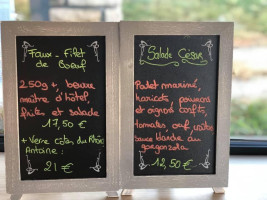 Faux-filet
de Bœuf
250g +, beurre
maître d'hôtel,
frites et salade
17,50 €
+ Verre Côtes du Rhône
Antoine :
21 €
Salade César
Poulet mariné,
haricots, poivrons
et oignons confits,
tomates, œuf,
sauce blanche au
gorgonzola
12,50 €